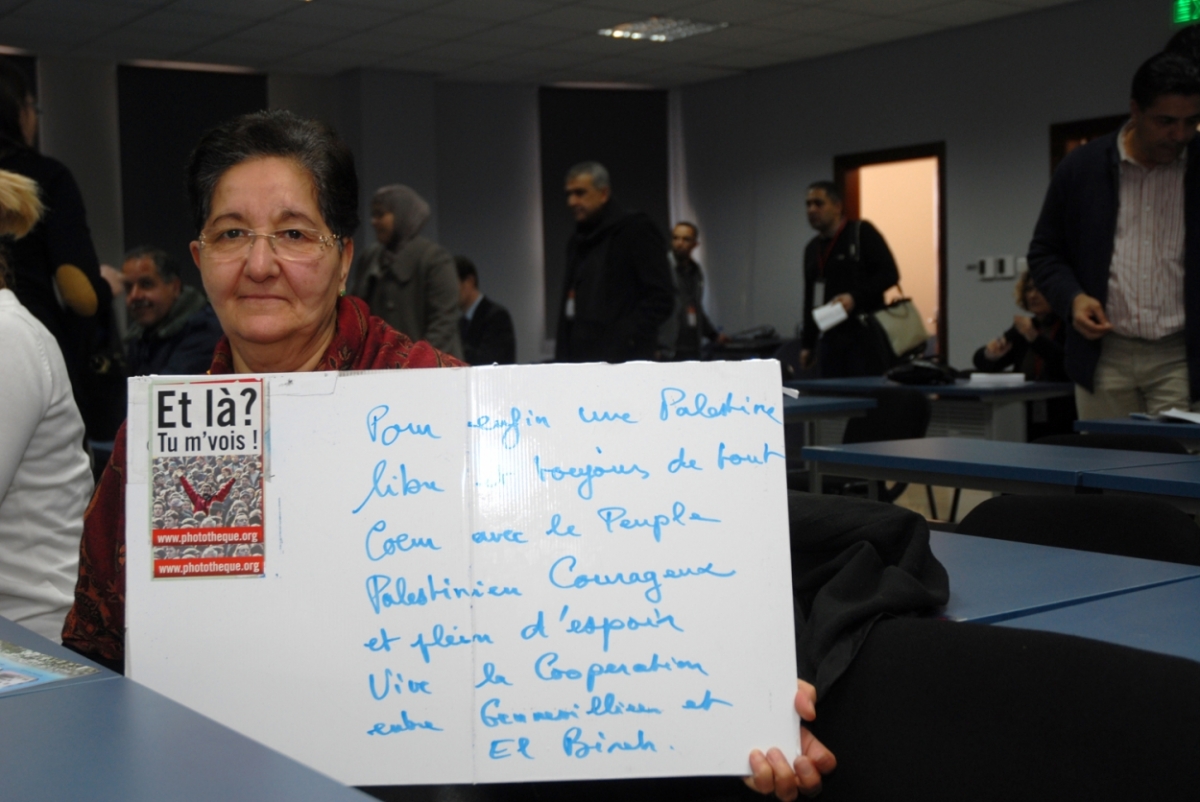 Et là?
Tu m'vois !
www.phototheque.org
www.phototheque.org
Pour enfin une Palestine
libre et toujours de tout
Coeur avec le Peuple
Palestinien Courageux
et plein d'espoir
Vive la Cooperation
entre Gennevilliers et
El Bireh.